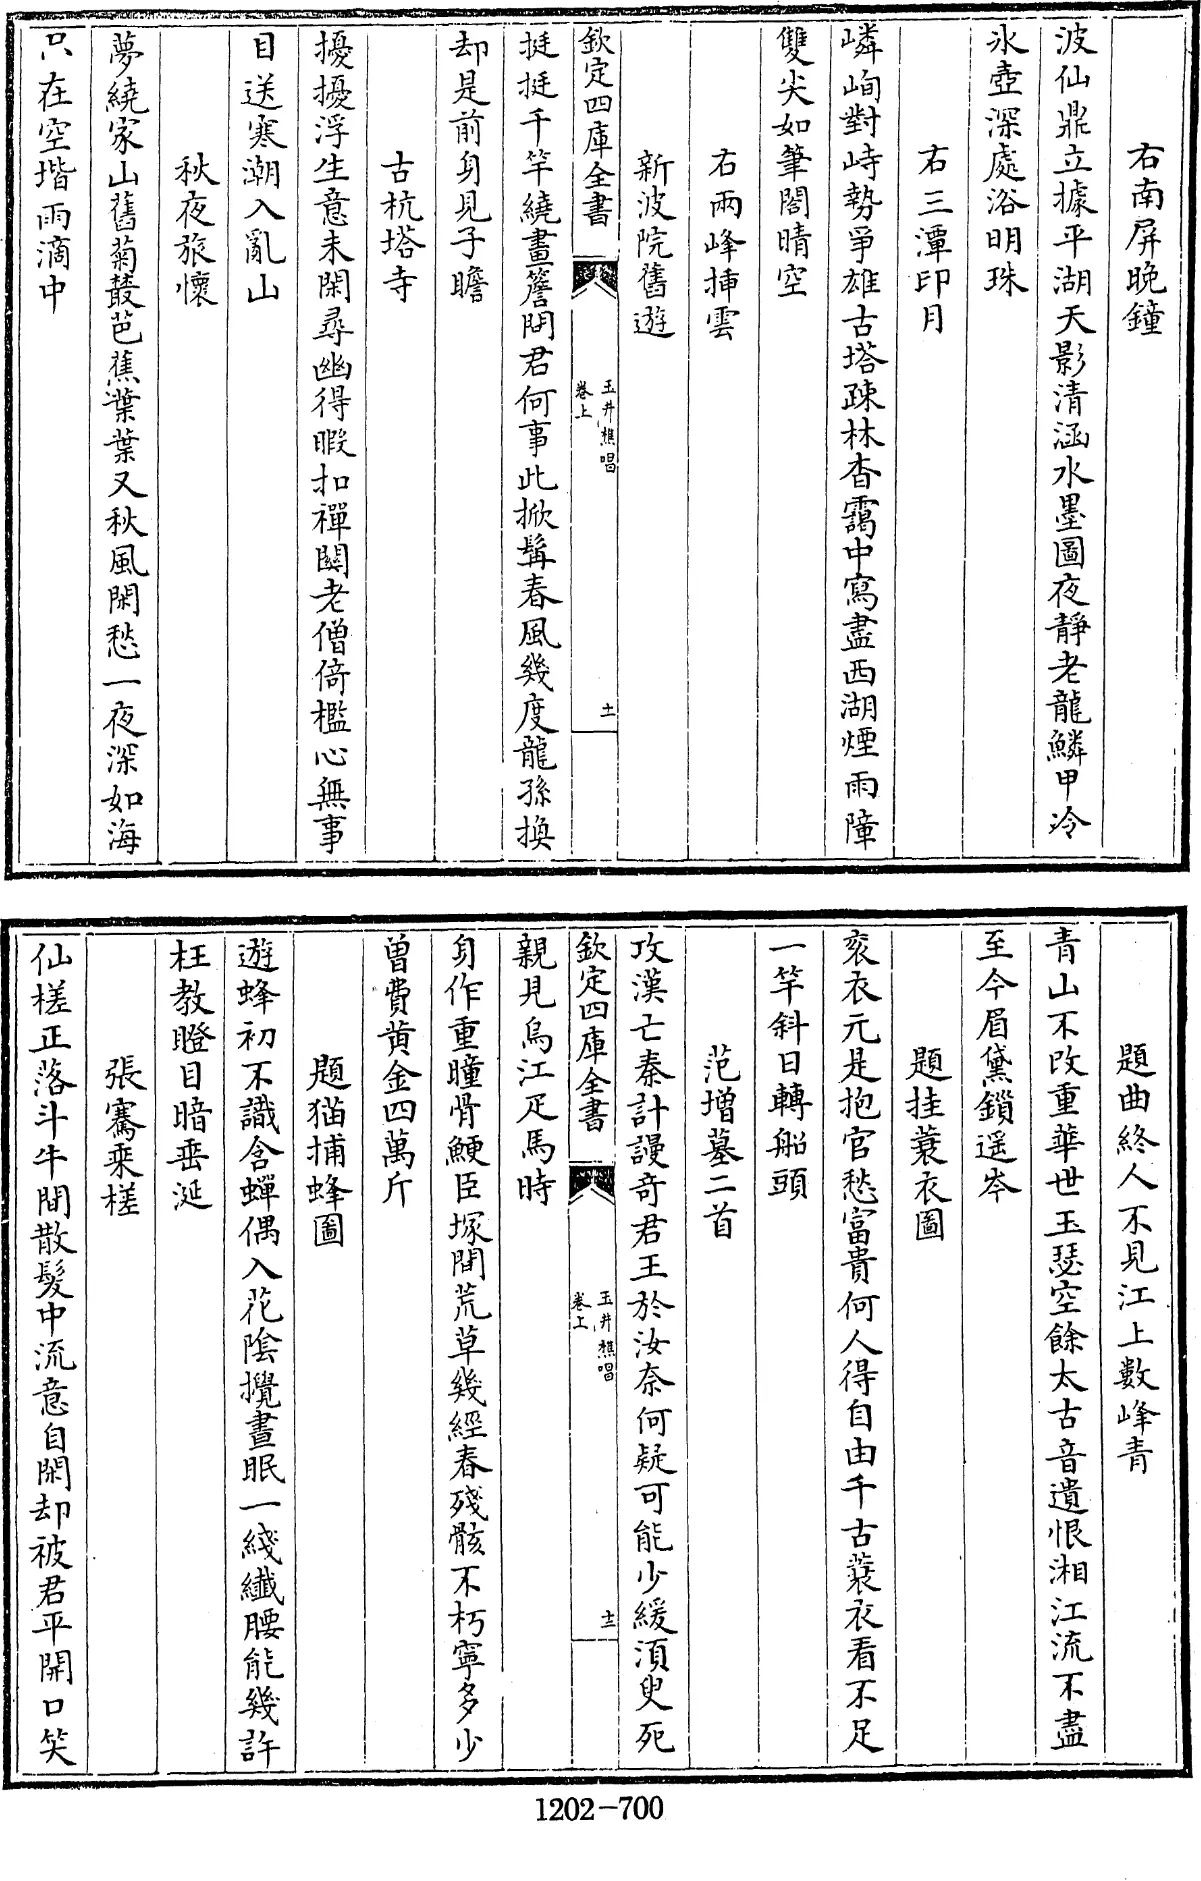 右南屏晚鐘
波仙鼎立據平湖天影清涵水墨圖夜靜老龍鱗甲冷
氷壺深處浴明珠
右三潭印月
嶙峋對峙勢爭雄古塔疎林杳靄中寫盡西湖煙雨障
雙尖如筆閣晴空
右兩峰揷雲
新波院舊遊
欽定四庫全書
玉井樵唱
卷上
十一
挺挺千竿繞畫簷問君何事此掀髯春風幾度龍孫換
却是前身見子瞻
古杭塔寺
擾擾浮生意未閑尋幽得暇扣禪關老僧倚檻心無事
目送寒潮入亂山
秋夜旅懷
夢繞家山舊菊叢芭蕉葉葉又秋風閑愁一夜深如海
只在空堦雨滴中
題曲終人不見江上數峰青
青山不改重華世玉瑟空餘太古音遺恨湘江流不盡
至今眉黛鎖遥岑
題挂蓑衣圖
衮衣元是抱官愁富貴何人得自由千古蓑衣看不足
一竿斜日轉船頭
范增墓二首
攻漢亡秦計謾奇君王於汝奈何疑可能少緩湏臾死
欽定四庫全書
玉井樵唱
卷上
十二
親見烏江疋馬時
身作重瞳骨鯁臣塚間荒草幾經春殘骸不朽寧多少
曽費黄金四萬斤
題猫捕蜂圖
遊蜂初不識含蟬偶入花陰攪晝眠一綫纖腰能幾許
枉教瞪目暗垂涎
張騫乘槎
仙槎正落斗牛間散髮中流意自閑却被君平開口笑
1202-700